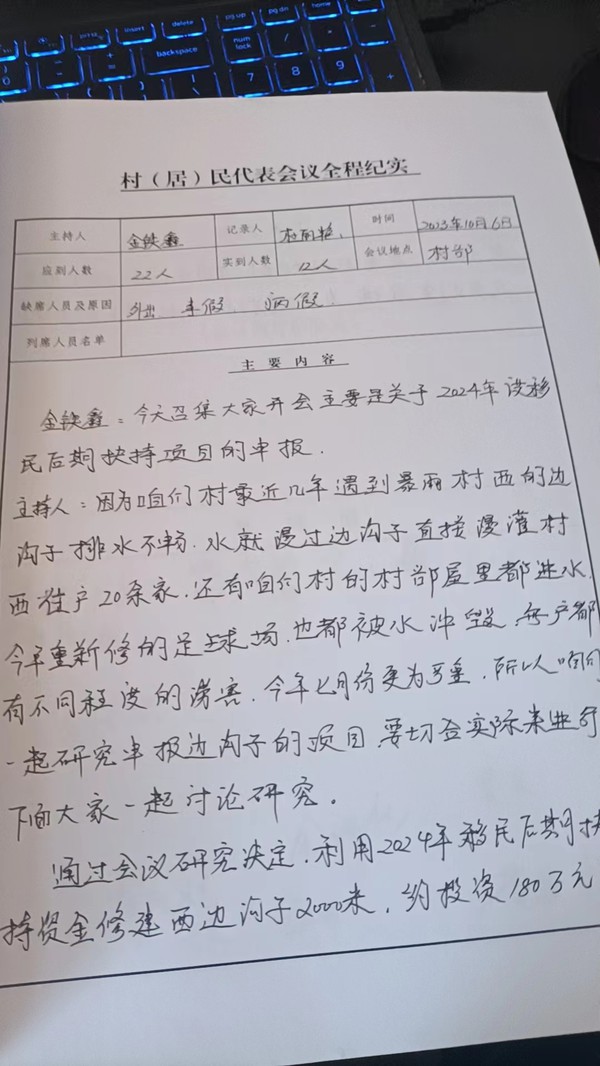 insert delete pg up pg dn
backspace num lock / *
7 8 9
村（居）民代表会议全程纪实
主持人 金铁鑫 记录人 时间 2023年10月6日
应到人数 22人 实到人数 12人 会议地点 村部
缺席人员及原因 外出 事假 病假
列席人员名单
主要内容
金铁鑫：今天召集大家开会主要是关于2024年该移
民后期扶持项目的申报.
主持人：因为咱们村最近几年遇到暴雨村西的边
沟子排水不畅.水就漫过边沟子直接漫灌村
西住户20余家.还有咱们村的村部屋里都进水.
今年重新修的足球场.也都被水冲毁.每户都
有不同程度的涝害.今年七月份更为严重.所以咱们
一起研究申报边沟子的项目.要切合实际来进行
下面大家一起讨论研究。
通过会议研究决定.利用2024年移民后期扶
持资金修建西边沟子2000米.约投资180万元